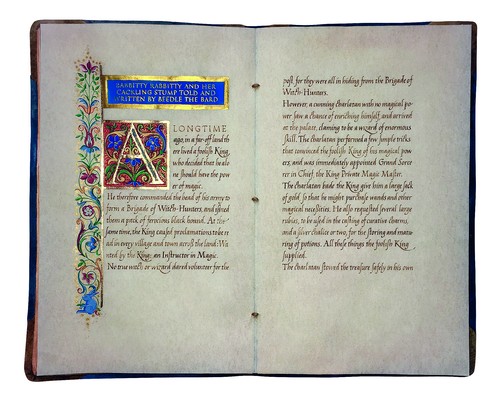 BABBITTY RABBITTY AND HER
CACKLING STUMP TOLD AND
WRITTEN BY BEEDLE THE BARD
A LONG TIME
ago, in a far-off land th
ere lived a foolish King,
who decided that he alo
ne should have the pow
er of magic.
He therefore commanded the head of his army to
form a Brigade of Witch-Hunters, and issued
them a pack of ferocious black hounds. At the
same time, the King caused proclamations to be re
ad in every village and town across the land: Wa
nted by the King; an Instructor in Magic.
No true witch or wizard dared volunteer for the
post, for they were all in hiding from the Brigade of
Witch-Hunters.
However, a cunning charlatan with no magical po
wer saw a chance of enriching himself, and arrived
at the palace, claiming to be a wizard of enormous
skill. The charlatan performed a few simple tricks
that convinced the foolish King of his magical pow
ers, and was immediately appointed Grand Sorce
rer in Chief, the King Private Magic Master.
The charlatan bade the King give him a large sack
of gold, so that he might purchase wands and other
magical necessities. He also requested several large
rubies, to be used in the casting of curative charms,
and a silver chalice or two, for the storing and matu
ring of potions. All these things the foolish King
supplied.
The charlatan stowed the treasure safely in his own